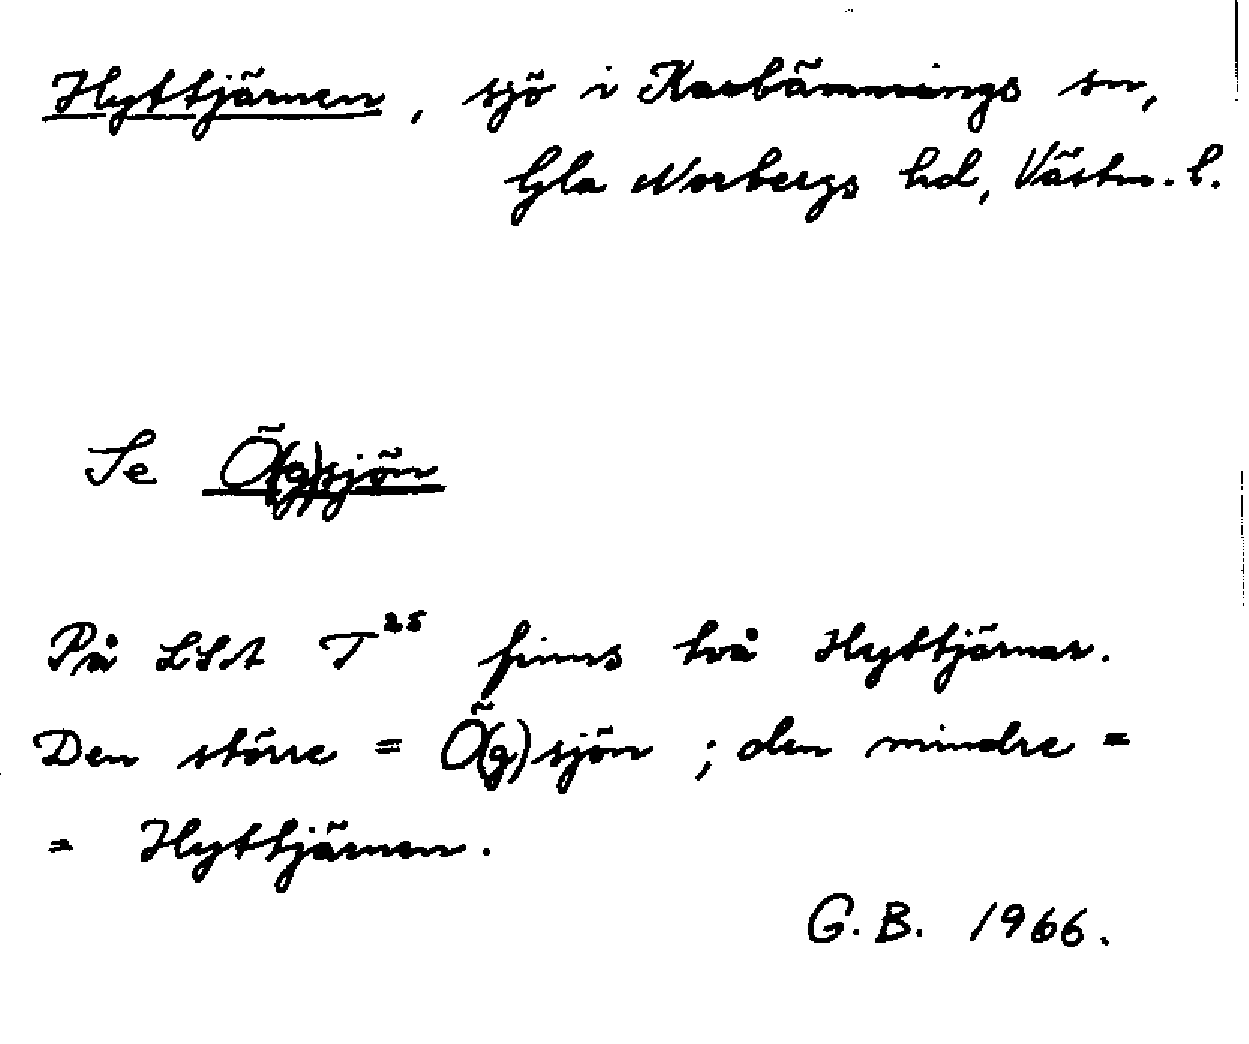 Hyttjärnen, sjö i Karbännings sn,
Gla Norbergs hd, Västm. l.
Se Ö(g)sjön
På LSA T²⁵ finns två Hyttjärnar.
Den större = Ö(g)sjön ; den mindre =
= Hyttjärnen.
G. B. 1966.